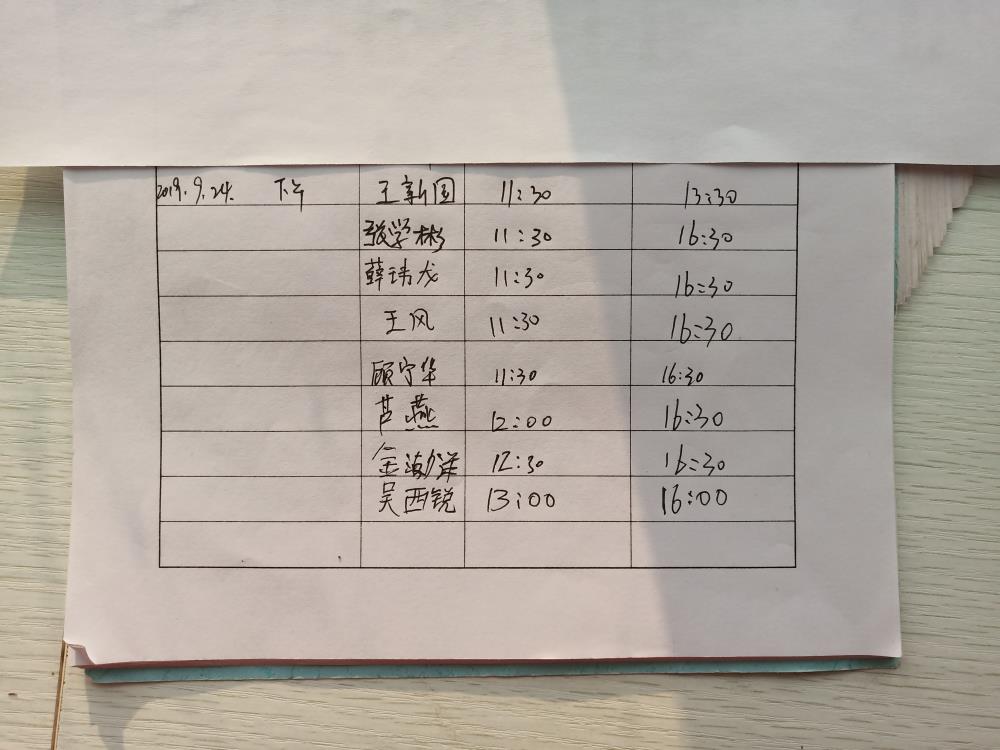 2019.9.24. 下午 王新国 11:30 13:30
张学彬 11:30 16:30
薛玮龙 11:30 16:30
王风 11:30 16:30
顾宁华 11:30 16:30
芦燕 12:00 16:30
金渤洋 12:30 16:30
吴西锐 13:00 16:00